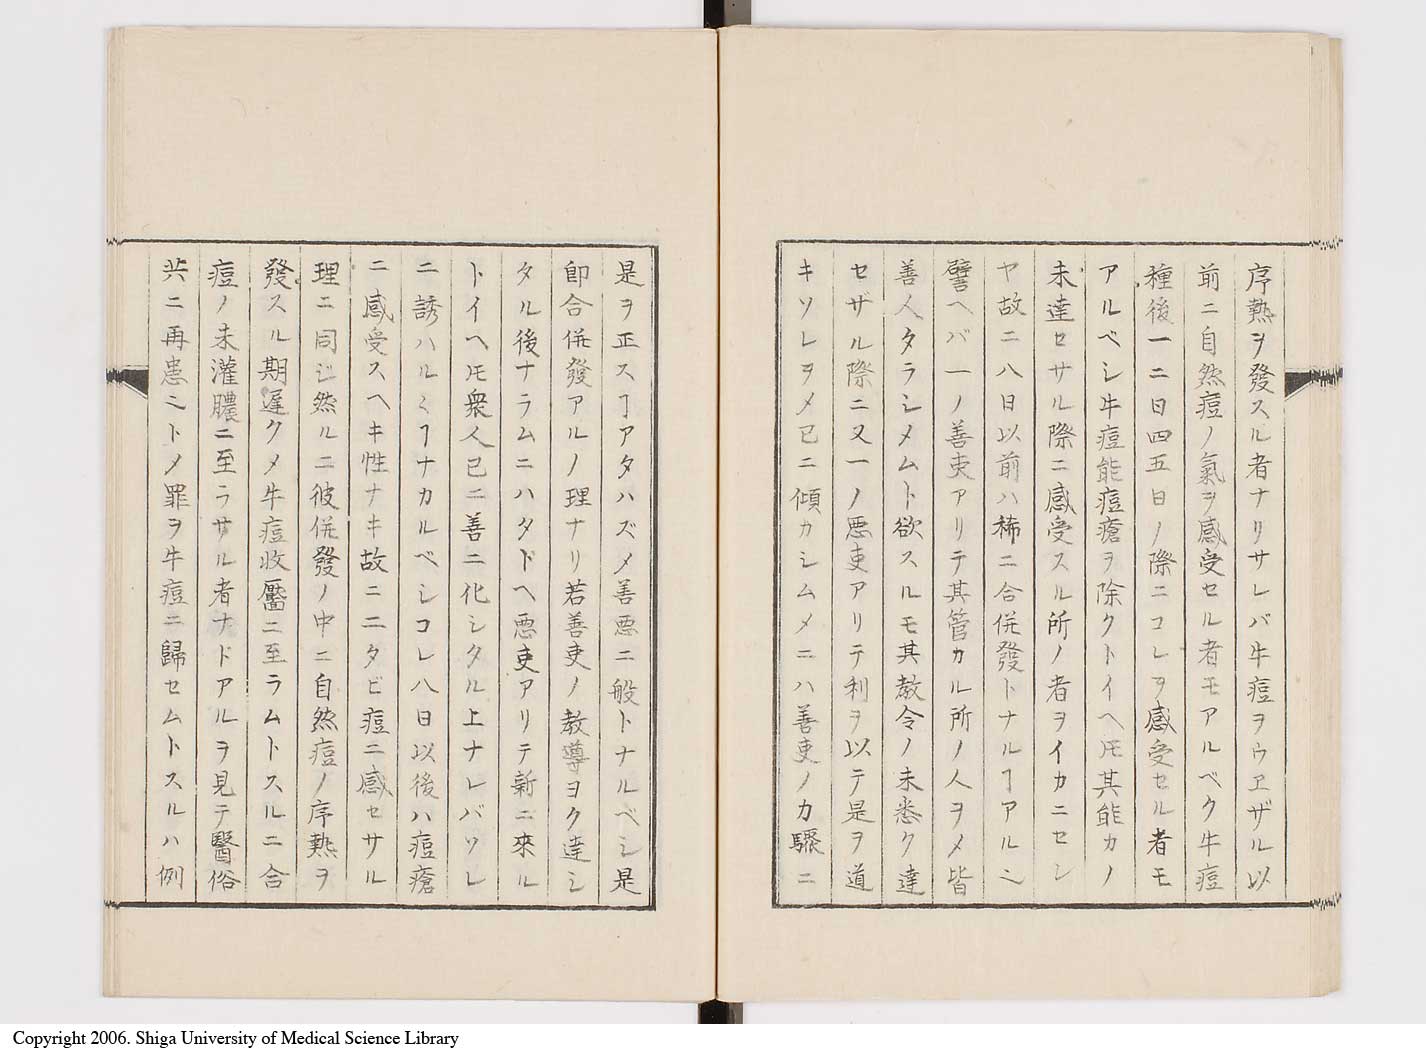 序熱ヲ發スル者ナリサレバ牛痘ヲウエザル以
前ニ自然痘ノ氣ヲ感受セル者モアルベク牛痘
種後一二日四五日ノ際ニコレヲ感受セル者モ
アルベシ牛痘能痘瘡ヲ除クトイヘ𪜈其能カノ
未達セサル際ニ感受スル所ノ者ヲイカニセン
ヤ故ニ八日以前ハ稀ニ合併發トナルヿアルベシ
譬ヘバ一ノ善吏アリテ其管カル所ノ人ヲ〆皆
善人タラシメムト欲スルモ其教令ノ未悉ク達
セザル際ニ又一ノ悪吏アリテ利ヲ以テ是ヲ道
キソレヲ〆已ニ傾カシム〆ニハ善吏ノカ驟ニ
是ヲ正スヿアタハズ〆善悪二般トナルベシ是
即合併發アルノ理ナリ若善吏ノ教導ヨク達シ
タル後ナラムニハタトヘ悪吏アリテ新ニ來ル
トイヘ𪜈衆人已ニ善ニ化シタル上ナレバソレ
ニ誘ハルヽヿナカルベシコレ八日以後ハ痘瘡
ニ感受スヘキ性ナキ故ニ二タビ痘ニ感セサル
理ニ同ジ然ルニ彼併發ノ中ニ自然痘ノ序熱ヲ
發スル期遅ク〆牛痘收靨ニ至ラムトスルニ合
痘ノ未灌膿ニ至ラサル者ナドアルヲ見テ醫俗
共ニ再患ニト〆罪ヲ牛痘ニ歸セムトスルハ例
Copyright 2006. Shiga University of Medical Science Library